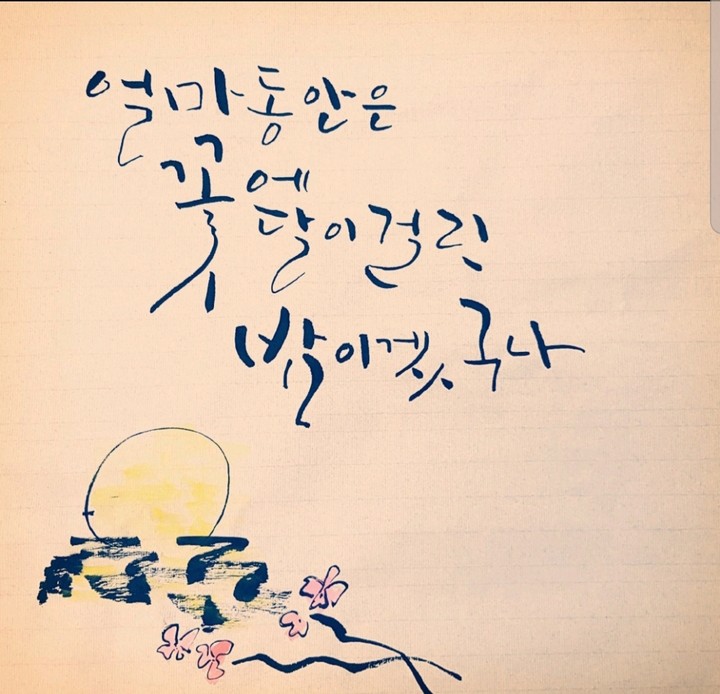 얼마동안은
꽃에
달이걸린
밤이겠구나